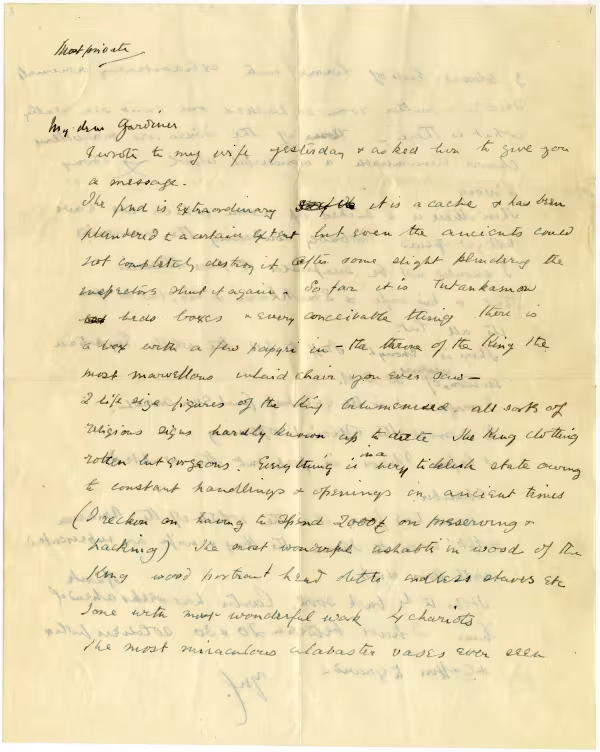 Most private
My dear Gardiner
I wrote to my wife yesterday & asked her to give you
a message.
The find is extraordinary it is a cache & has been
plundered to a certain extent but even the ancients could
not completely destroy it after some slight plundering the
inspectors shut it again. So far it is Tutankamon
beds boxes & every conceivable thing there is
a box with a few papyri in - the throne of the King the
most marvellous inlaid chair you ever saw -
2 life size figures of the King bitumenised all sorts of
religious signs hardly known up to date The King clothing
rotten but gorgeous. Everything is in a very ticklish state owing
to constant handlings & openings in ancient times
(I reckon on having to spend 2000£ on preserving &
packing) The most wonderful ushabti in wood of the
King wood portrait head ditto endless staves etc
some with most wonderful work 4 chariots
The most miraculous alabaster vases ever seen